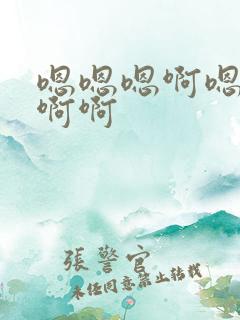 嗯嗯嗯啊嗯
啊啊
張警官
未经同意禁止转载